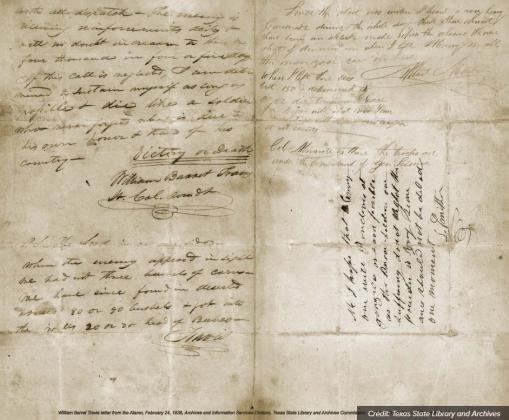 with all dispatch - The enemy is
receiving reinforcements daily &
will no doubt increase to three or
four thousand in four or five days.
If this call is neglected, I am deter
mined to sustain myself as long as
possible & die like a soldier
who never forgets what is due to
his own honor & that of his
country -
Victory or Death
William Barret Travis
Lt. Col. Comdt
P.S. The Lord is on our side -
When the enemy appeared in sight
we had not three bushels of corn -
We have since found in deserted
houses 80 or 90 bushels & got into
the walls 20 or 30 head of Beeves -
Travis
Since the above was written I heard a very heavy
Cannonade during the whole day
think there must
have been an attack made
upon the Alamo We were
short of ammunition when I left Hurry on all
the men you can
Albert Martin
When I left there was
but 150
Col
the troops are
under the Command of
N.b I hope that Every
one will Rendeves at
gonzales as soon as possible
as the Brave Soldiers are
suffering do not neglect the
powder is very scarce
and should not be delad
one moment
L. Smither
William Barret Travis letter from the Alamo, February 24, 1836, Archives and Information Services Division, Texas State Library and Archives Commission
Credit: Texas State Library and Archives